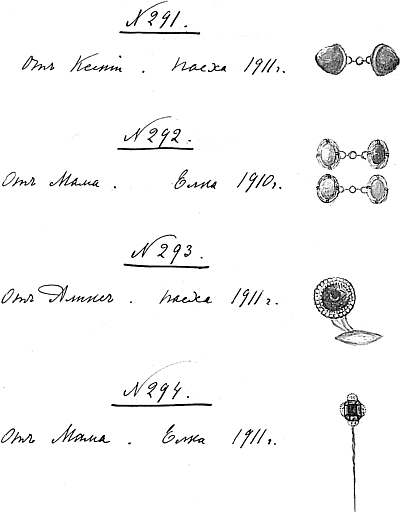 N 291.
Отъ Ксеніи. Пасха 1911 г.
N 292.
Отъ Мама. Елка 1910 г.
N 293.
Отъ Аликсъ. Пасха 1911 г.
N 294.
Отъ Мама. Елка 1911 г.